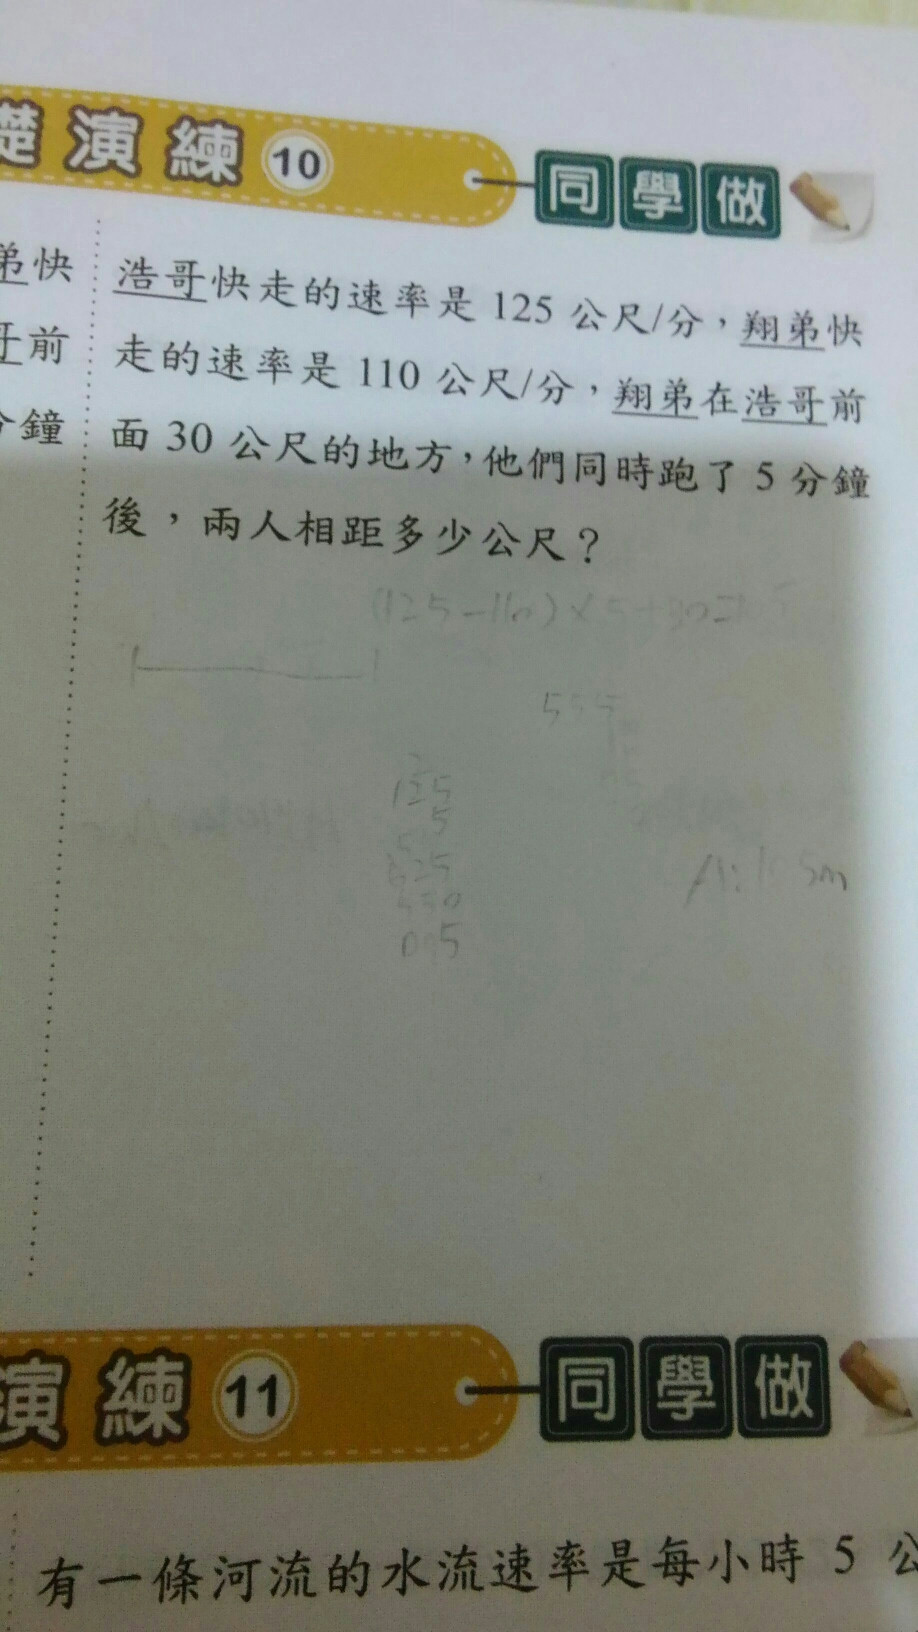 礎演練 10 同學做
弟快
哥前
分鐘
浩哥快走的速率是 125 公尺/分，翔弟快
走的速率是 110 公尺/分，翔弟在浩哥前
面 30 公尺的地方，他們同時跑了 5 分鐘
後，兩人相距多少公尺？
(125-110)×5+30=105
555
125
5
625
550
A: 105m
演練 11 同學做
有一條河流的水流速率是每小時 5 公